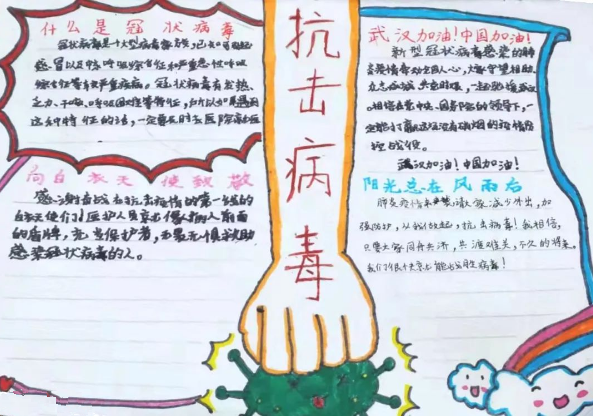 什么是冠状病毒
冠状病毒是一个大型病毒家族，已知可引起
感冒以及中东呼吸综合征和严重急性呼吸
综合征等较严重疾病。冠状病毒有发热、
乏力、干咳、呼吸困难等
这种特征的话，一定要及时去医院
向白衣天使致敬
感谢奋战在抗击疫情的第一线的
白衣天使们！医护人员
的盾牌，
感染冠状病毒的人。
抗击病毒
武汉加油！中国加油！
新型冠状病毒感染的肺
炎疫情牵动全国人心，大家守望相助、
相信在党中央、国务院的领导下，一
定能打赢这场没有硝烟的疫情防
控战役。
武汉加油！中国加油！
阳光总在风雨后
肺炎疫情 请大家减少外出，加
强防护，从我做起，抗击病毒！我相信，
只要大家同舟共济，共渡难关，不久的将来，
我们 能战胜病毒！